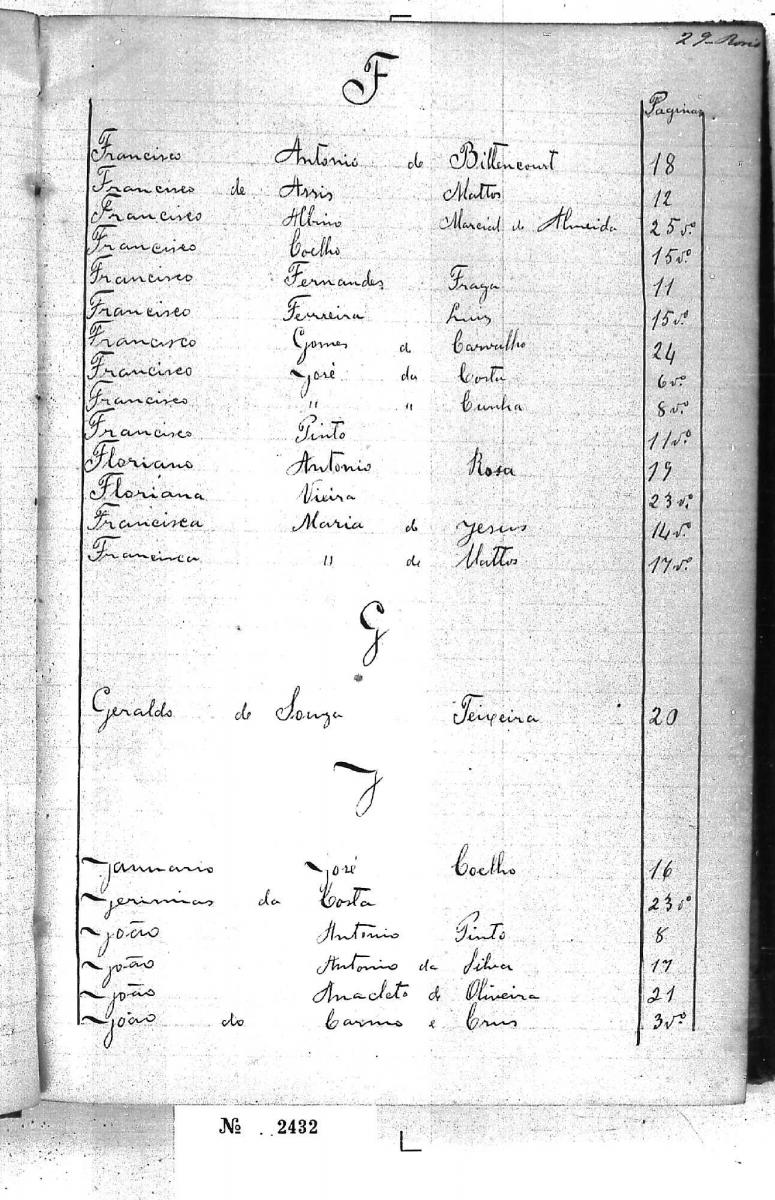 29-
F
Paginas
Francisco Antonio de Bittencourt 18
Francisco de Assis Mattos 12
Francisco Albino Marcial de Almeida 25 vº
Francisco Coelho 15 vº
Francisco Fernandes Fraga 11
Francisco Ferreira Luis 15 vº
Francisco Gomes de Carvalho 24
Francisco José da Costa 6 vº
Francisco " " Cunha 8 vº
Francisco Pinto 11 vº
Floriano Antonio Rosa 19
Floriana Vieira 23 vº
Francisca Maria de Jesus 14 vº
Francisca " de Mattos 17 vº
G
Geraldo de Souza Teixeira 20
J
Januario José Coelho 16
Jerimias da Costa 23 vº
João Antonio Pinto 8
João Antonio da Silva 17
João Anacleto de Oliveira 21
João do Carmo e Crus 3 vº
№ 2432